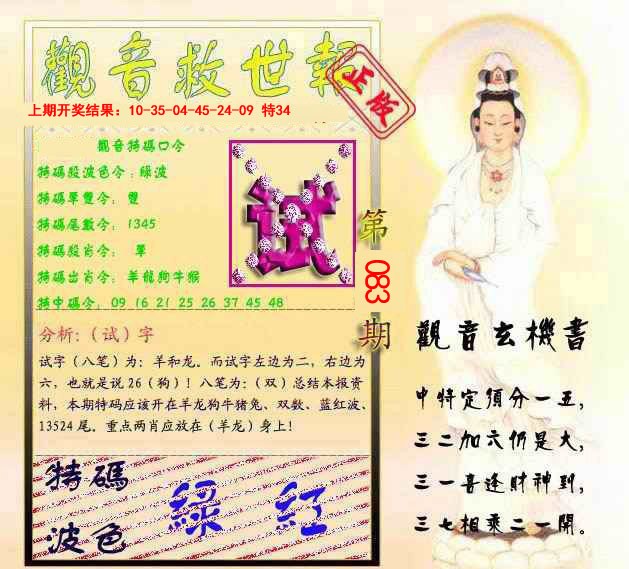 觀音救世報
正版
上期开奖结果：10-35-04-45-24-09 特34
觀音特碼口令
特碼段波色令：綠波
特碼單雙令： 雙
特碼尾數令： 1345
特碼段肖令： 單
特碼出肖令：羊龍狗牛猴
特中碼令： 09 16 21 25 26 37 45 48
试
第083期
分析：（试）字
试字（八笔）为：羊和龙。而试字左边为二，右边为
六，也就是说26（狗）！八笔为：（双）总结本报资
料，本期特码应该开在羊龙狗牛猪兔、双数、蓝红波、
13524尾。重点两肖应放在（羊龙）身上！
特碼
波色
綠 紅
觀音玄機書
中特定須分一五，
三二加六仍是大，
三一喜逢財神到，
三七相乘二一開。